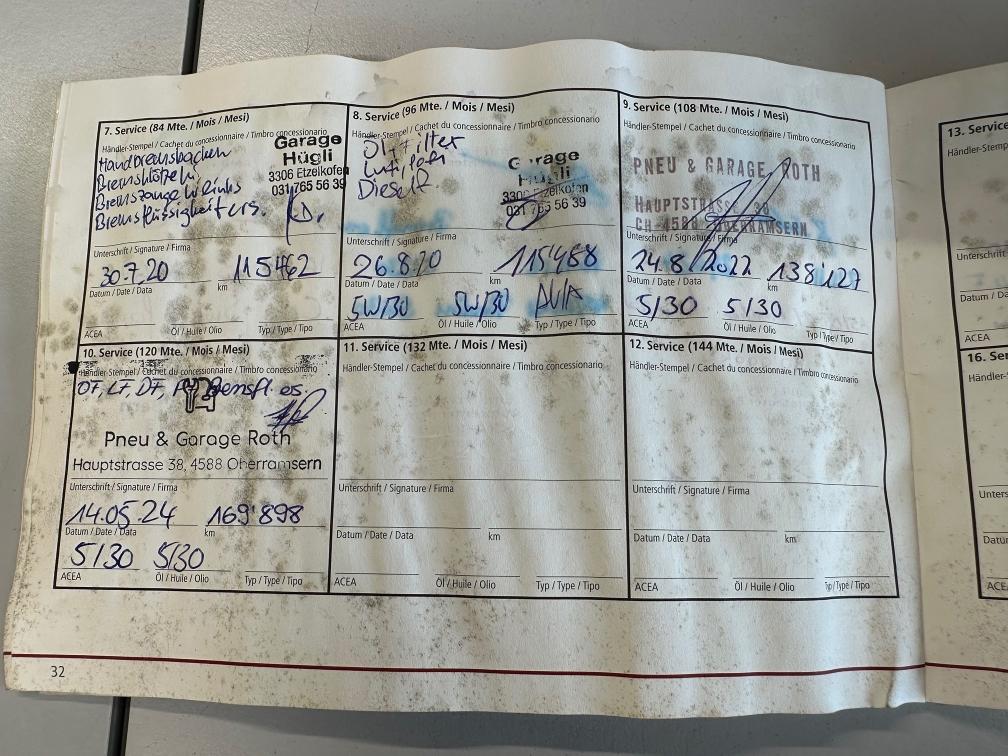 7. Service (84 Mte. / Mois / Mesi)
Händler-Stempel / Cachet du concessionnaire / Timbro concessionario
Handbremsbacken
Bremsklötze hi
Bremszange hi links
Bremsflüssigkeit ers.
Garage
Hügli
3306 Etzelkofen
031 765 56 39
Unterschrift / Signature / Firma
30.7.20 115462
Datum / Date / Data km
ACEA Öl / Huile / Olio Typ / Type / Tipo
8. Service (96 Mte. / Mois / Mesi)
Händler-Stempel / Cachet du concessionnaire / Timbro concessionario
Öl, Filter
Dieself.
Garage
Hügli
3306 Etzelkofen
031 765 56 39
Unterschrift / Signature / Firma
26.8.20 115488
Datum / Date / Data km
5W/30 5W/30 AVIA
ACEA Öl / Huile / Olio Typ / Type / Tipo
9. Service (108 Mte. / Mois / Mesi)
Händler-Stempel / Cachet du concessionnaire / Timbro concessionario
PNEU & GARAGE ROTH
HAUPTSTRASSE 38
CH-4588 OBERRAMSERN
Unterschrift / Signature / Firma
24.8/2022 138'127
Datum / Date / Data km
5/30 5/30
ACEA Öl / Huile / Olio Typ / Type / Tipo
10. Service (120 Mte. / Mois / Mesi)
Händler-Stempel / Cachet du concessionnaire / Timbro concessionario
OF, LF, DF,
Pneu & Garage Roth
Hauptstrasse 38, 4588 Oberramsern
Unterschrift / Signature / Firma
14.05.24 169'898
Datum / Date / Data km
5/30 5/30
ACEA Öl / Huile / Olio Typ / Type / Tipo
11. Service (132 Mte. / Mois / Mesi)
Händler-Stempel / Cachet du concessionnaire / Timbro concessionario
Unterschrift / Signature / Firma
Datum / Date / Data km
ACEA Öl / Huile / Olio Typ / Type / Tipo
12. Service (144 Mte. / Mois / Mesi)
Händler-Stempel / Cachet du concessionnaire / Timbro concessionario
Unterschrift / Signature / Firma
Datum / Date / Data km
ACEA Öl / Huile / Olio Typ / Type / Tipo
32
13. Servic
Händler-Stemp
Unterschrift
Datum / Da
ACEA
16. Se
Händler-
Unters
Datu
ACE